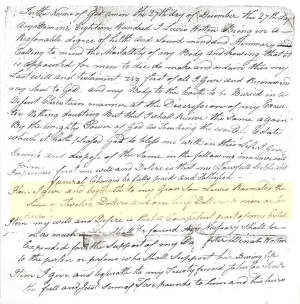 In the Name of God amen the 27th day of December the 27th day
Anno Domini, Eighteen Hundred I Lewis Horton Being in a
Reasonable state of health and sound mind and Memory and
Calling to mind the Mortality of my Body and knowing that it
is appointed for men to die do make and ordain this my
Last will and Testament viz first of all I give and Recommend
my Soul to God and my Body to the Earth to be Buried in a
Decent Christian manner at the Discression of my
Nothing doubting But that I shall Receive the same again
By the mighty Power of God as Touching the worldly Estate
which it hath pleased God to bless me with in this Life I give
and dispose of the same in the following manner
first my will and Desire is that my Lawfull Debts and
funeral Charges be fully paid and Satisfied
Item I give and bequeath to my Gran Son Lewis the
Sum of Twelve Dollars
Item my will and Desire is that a Competent part of my Estate
as much as Shall be found Nessary Shall be
Expended for the Support of my Horton
to the person or persons who Shall Support her During Life
Item I give and bequeath to my friend John
the full and Just sum of Five pounds to him and his heirs